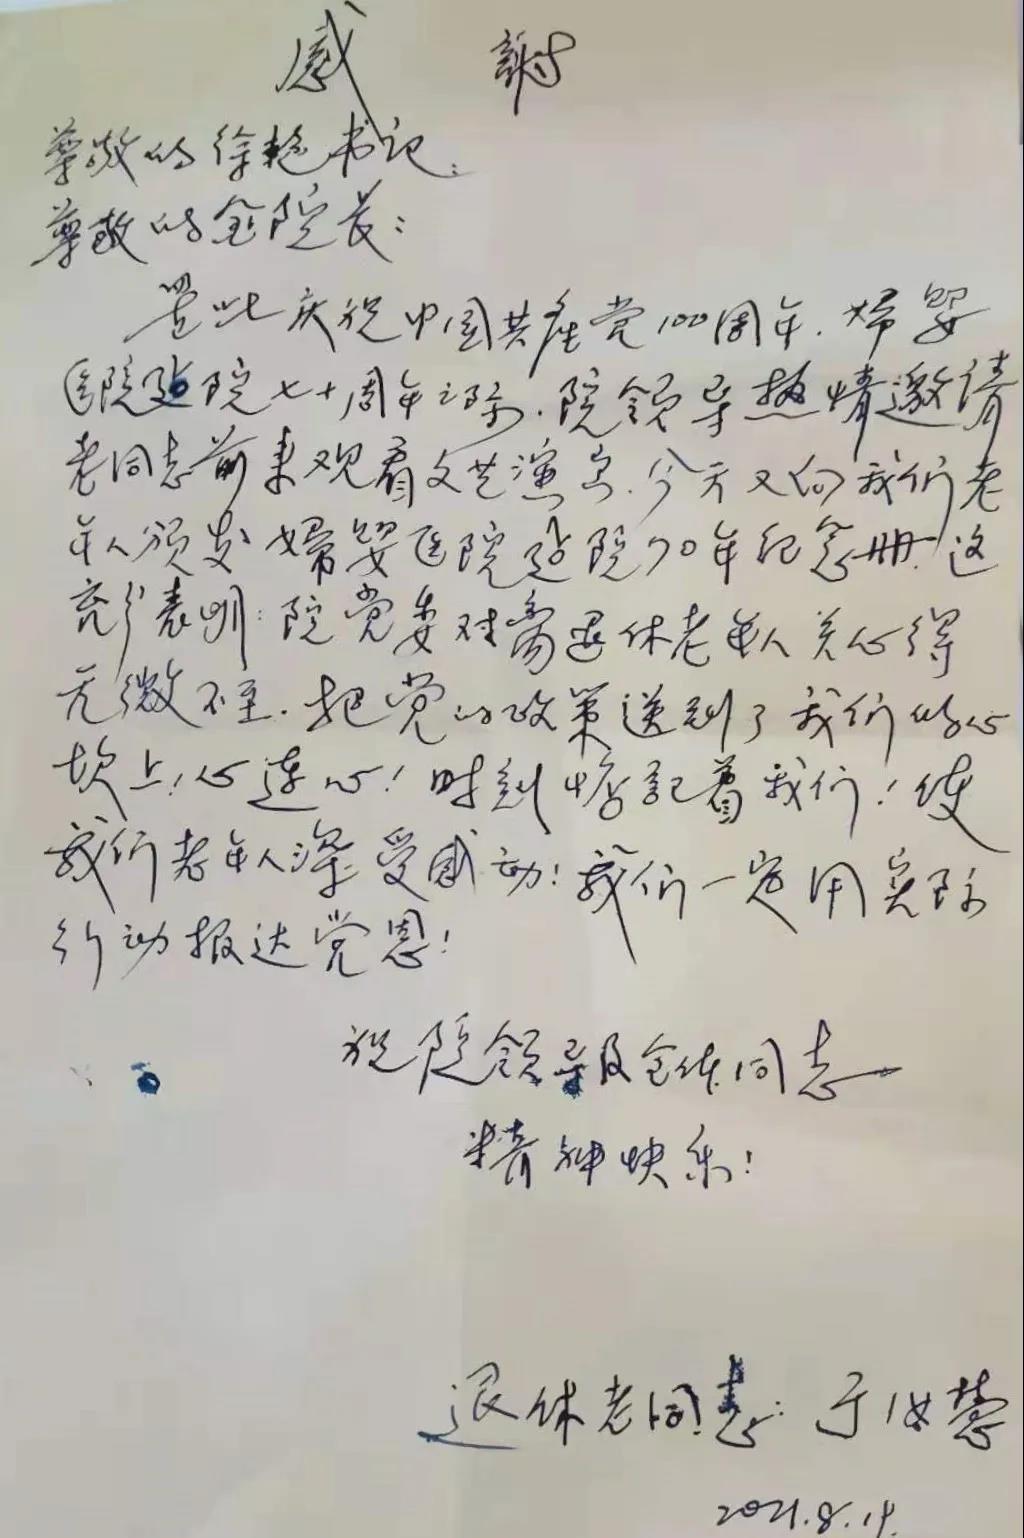 感謝
尊敬的徐艳书记:
尊敬的金院长:
值此庆祝中国共产党100周年.婦婴
医院建院七十周年之际.院领导热情邀请
老同志前来观看文艺演出.今天又向我们老
年人颁发婦婴医院建院70年纪念册.这
充分表明:院党委对离退休老年人关心得
无微不至.把党的政策送到了我们的心
坎上!心连心!时刻惦记着我们!使
我们老年人深受感动!我们一定用实际
行动报达党恩!
祝院领导及全体同志
精神快乐!
退休老同志:于汝慧
2021.8.19.